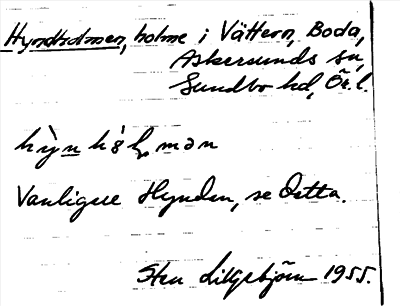 Hyndholmen, holme i Vättern, Boda,
Askersunds sn,
Sundbo hd, Ör. l.
Vanligue Hynden, se Detta.
Sten Liljebjörn 1955.